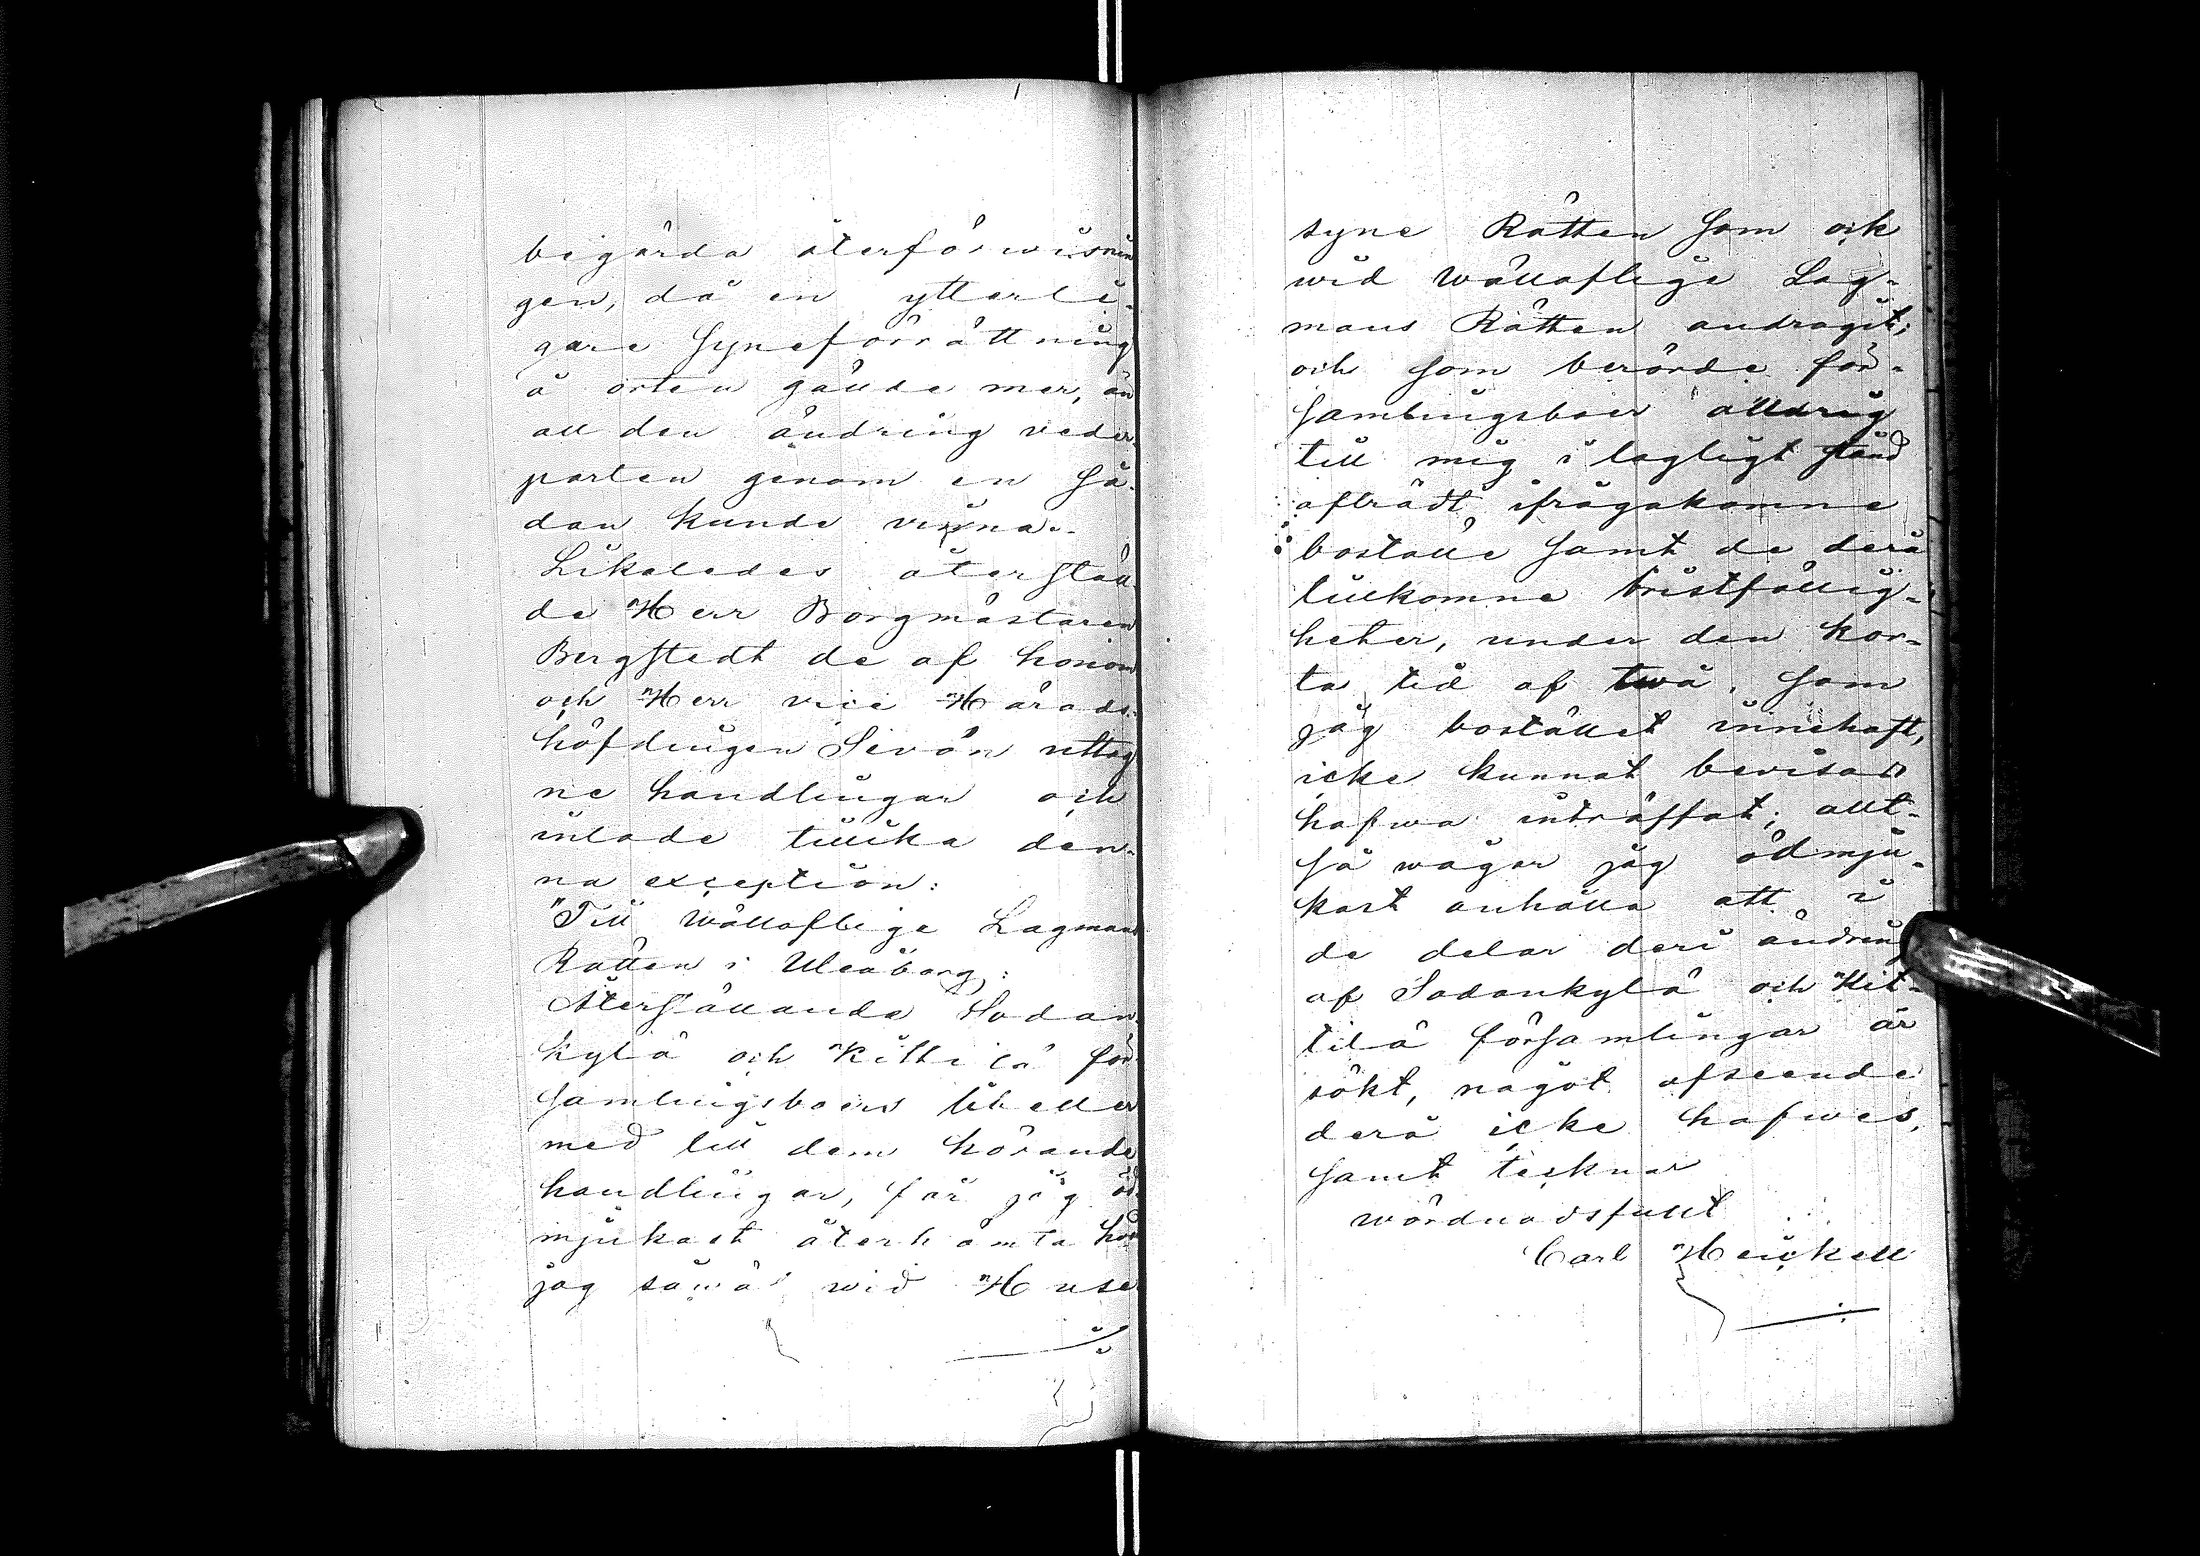 begärda återförwisnin
gen, då en ytterli-
gare Syneförrättning
å orten gälde mer, än
all den ändring veder-
parten genom en så-
dan kunde vinna.
Likaledes återstäl-
de Herr Borgmästaren
Bergstedt de af honom
och Herr vice Härads-
höfdingen Sivén uttag
ne handlingar och
inlade tillika den-
na exception:
"Till Wälloflige Lagmans
Rätten i Uleåborg;
Återställande Sodan-
kylä och Kittilä för-
samlingsboers libeller
med till dem hörande
handlingar, får jag öd-
mjukast återhämta hvad
jag såwäl wid Huse
syne Rätten som ock
wid Wälloflige Lag-
mans Rätten andragit;
och som berörde för-
samlingsboer alldrig
till mig i lagligt stånd
afträdt ifrågakomne
boställe samt de derå
tillkomne bristfällig-
heter, under den kor-
ta tid af twå, som
jag bostället innehaft,
icke kunnat bevisas
hafwa inträffat; allt-
så wågar jag ödmju-
kast anhålla att i
de delar deri ändring
af Sodankylä och Kit-
tilä församlingar är
sökt, något afseende
derå icke hafwes,
samt tecknar
wördnadsfullt
Carl Heickell